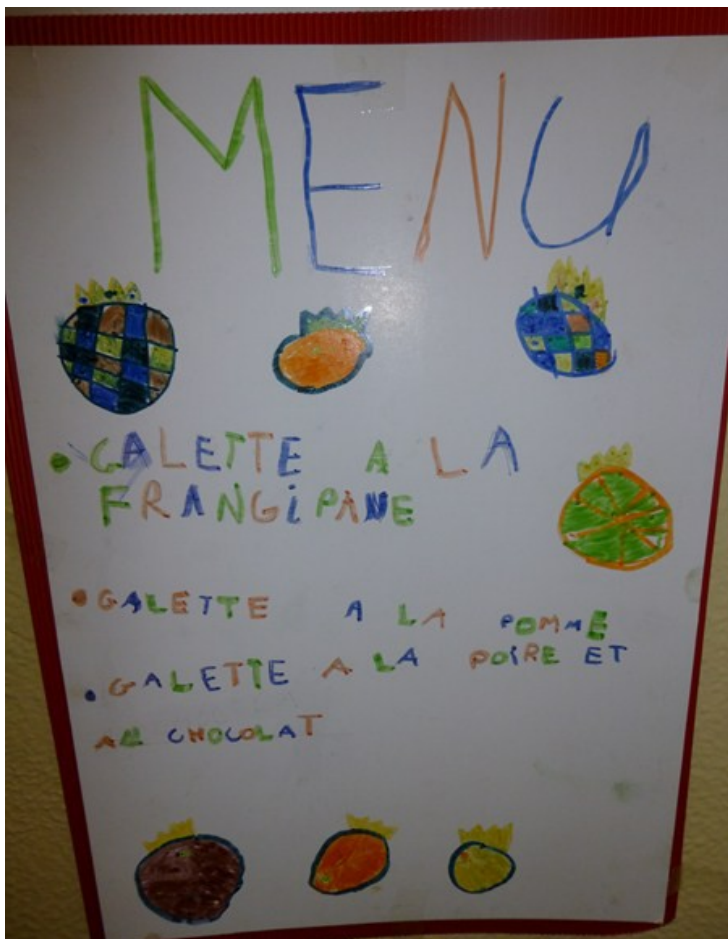 MENU
• GALETTE A LA
FRANGIPANE
• GALETTE A LA POMME
• GALETTE A LA POIRE ET
AU CHOCOLAT